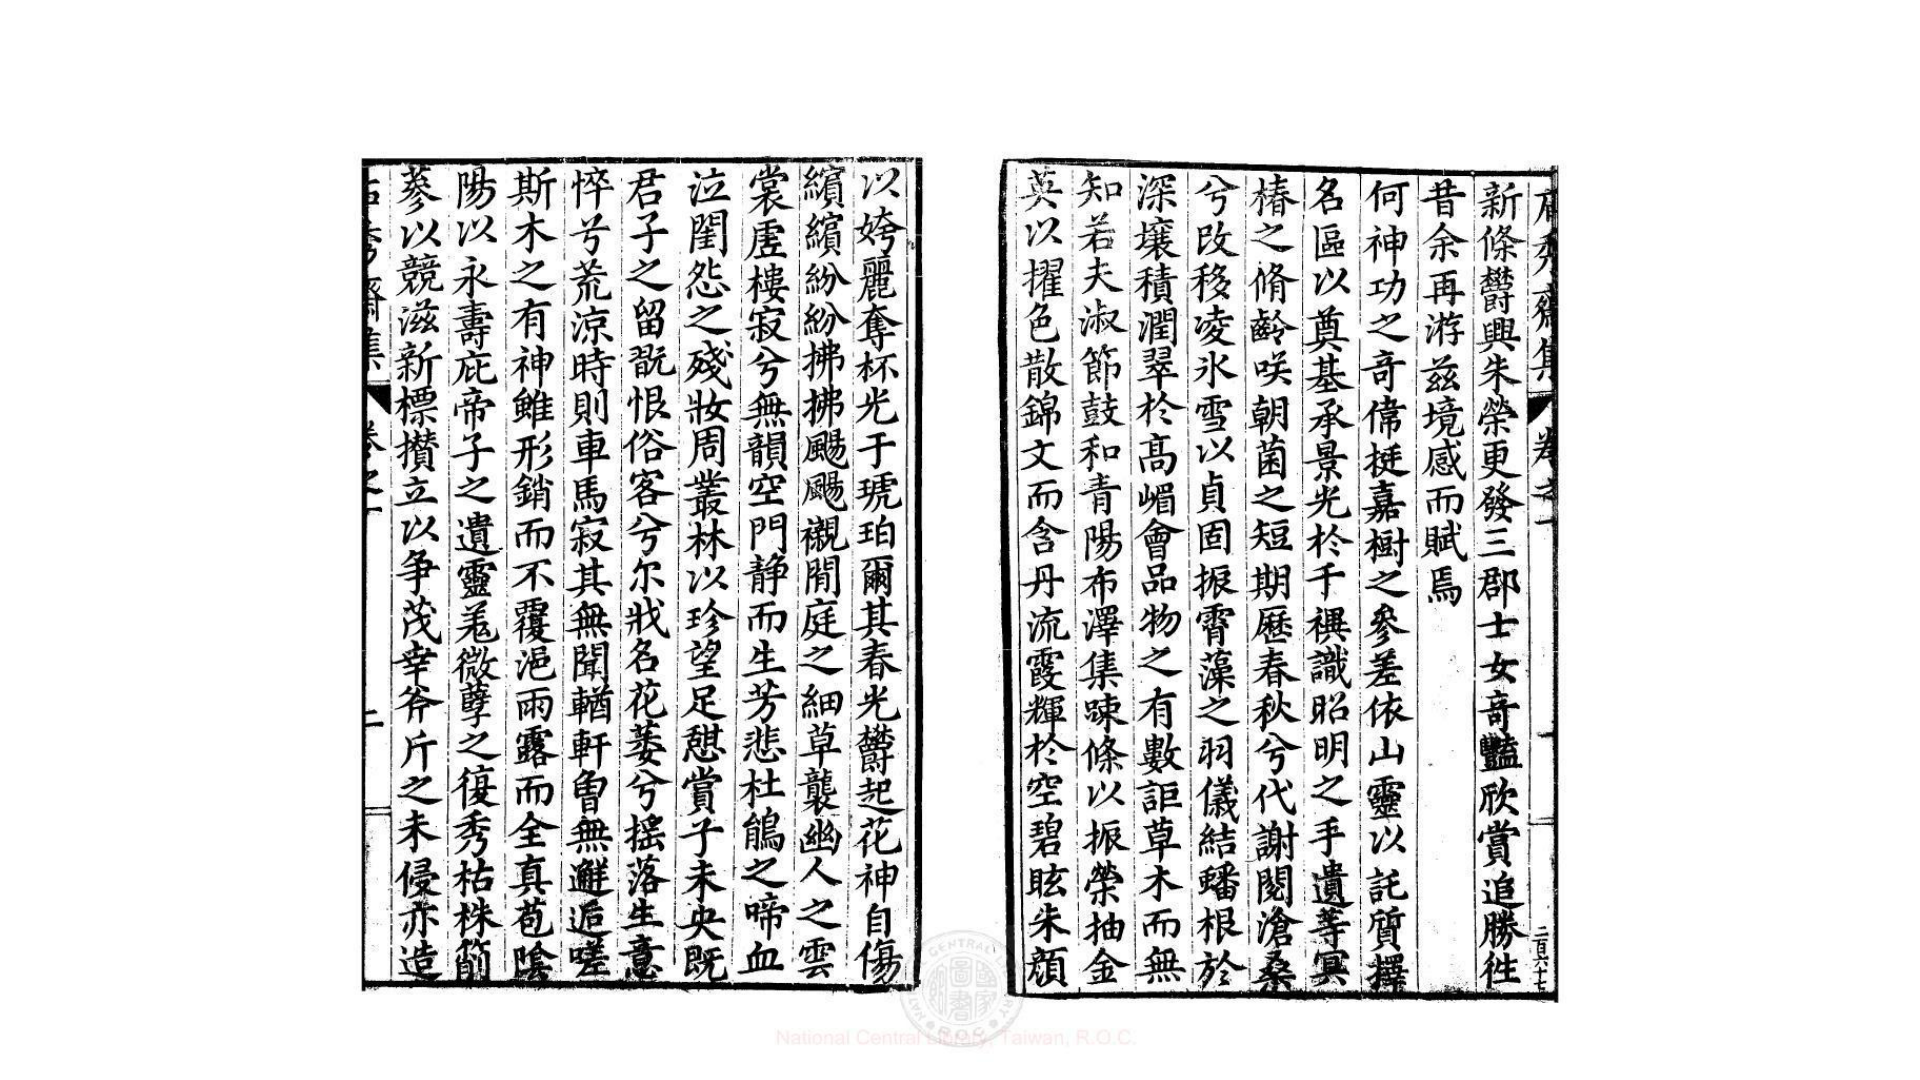 新條欝興朱榮更發三郡士女竒豔欣賞追勝徃
昔余再游兹境感而賦焉
何神功之奇偉挺嘉樹之參差依山靈以託質擇
名區以奠基承景光於千禩識昭明之手遺等冥
椿之脩齡咲朝菌之短期歷春秋兮代謝閱滄桑
兮改移凌氷雪以貞固振霄藻之羽儀結蟠根於
深壤積潤翠於高嵋會品物之有數詎草木而無
知若夫淑節鼓和青陽布澤集踈條以振榮抽金
英以擢色散錦文而含丹流霞輝於空碧眩朱顔
以姱麗奪杯光于琥珀爾其春光欝起花神自傷
繽繽紛紛拂拂颺颺襯閒庭之細草襲幽人之雲
裳虗樓寂兮無韻空門静而生芳悲杜鵑之啼血
泣閨怨之殘妝周叢林以珍望足憇賞子未央既
君子之留翫恨俗客兮尔戕名花萎兮摇落生意
悴兮荒凉時則車馬寂其無聞輶軒曾無邂逅嗟
斯木之有神雖形銷而不覆浥雨露而全真苞陰
陽以永壽庇帝子之遺靈羗微孽之復秀枯株
蔘以競滋新標攅立以争茂幸斧斤之未侵亦造
卷之一
二
二百六十七
National Central Library, Taiwan, R.O.C.